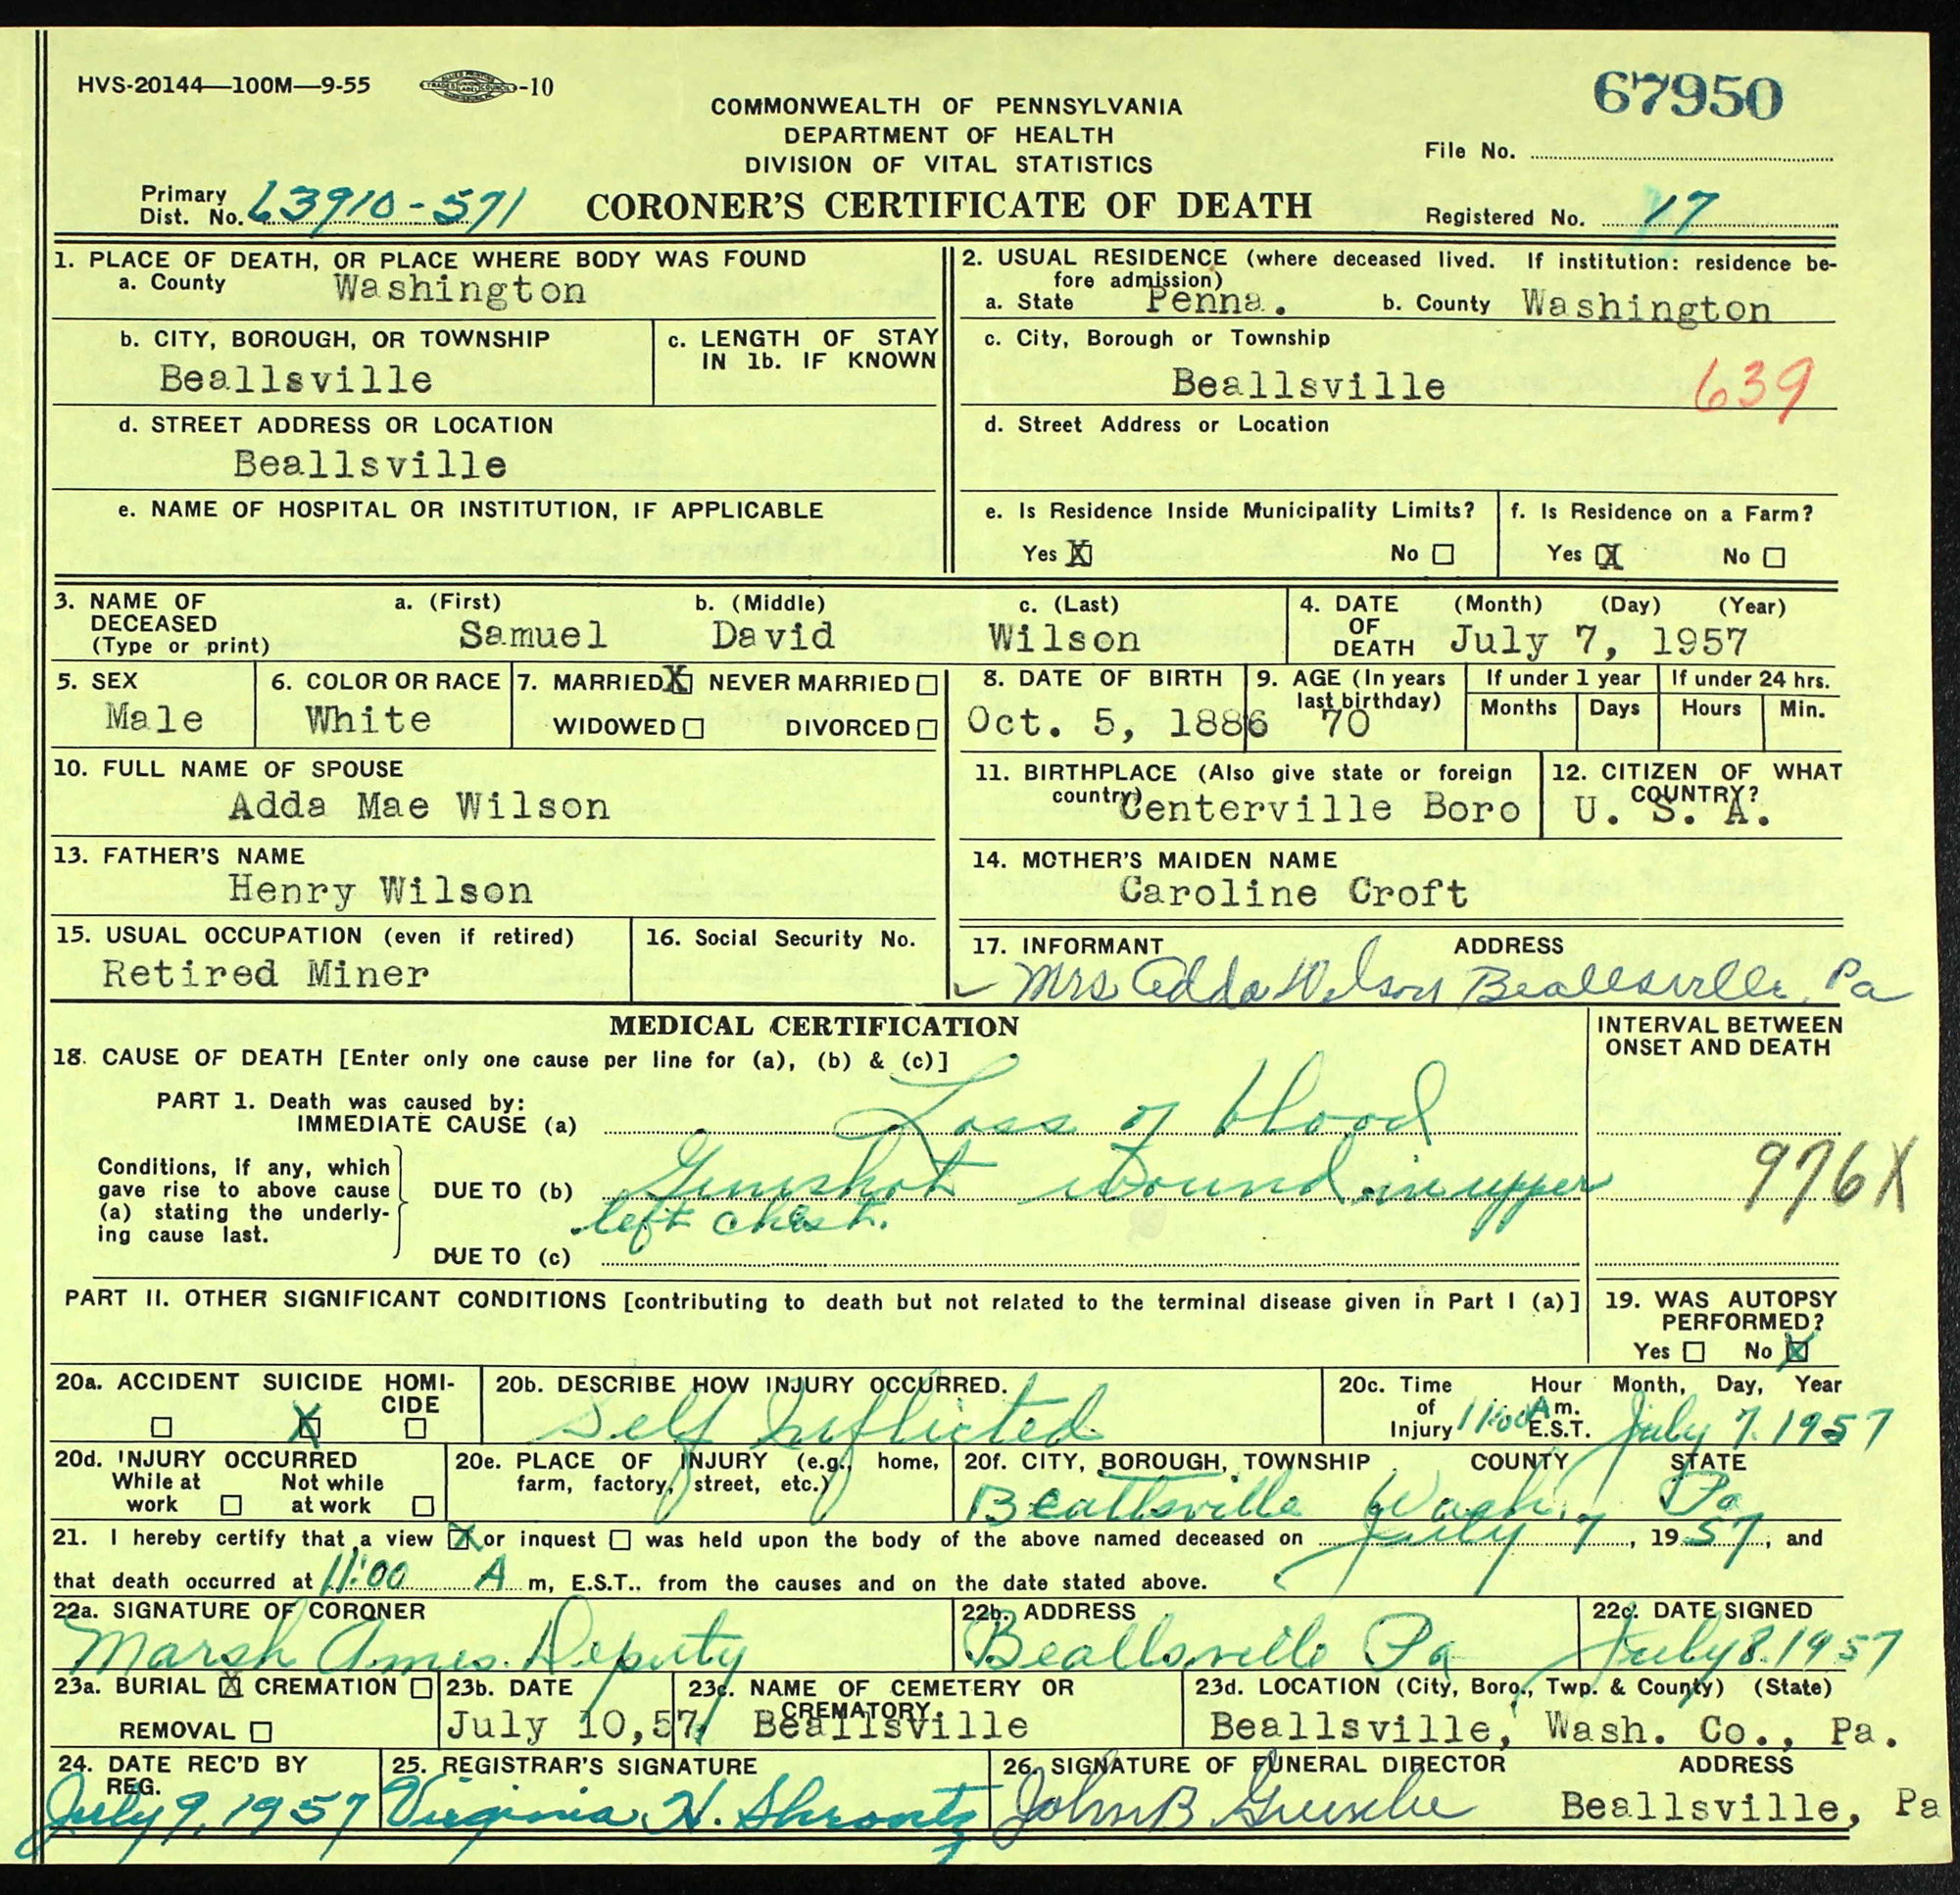 HVS-20144—100M—9-55 -10
67950
COMMONWEALTH OF PENNSYLVANIA
DEPARTMENT OF HEALTH
DIVISION OF VITAL STATISTICS
File No.
Primary Dist. No. 63910-571
CORONER'S CERTIFICATE OF DEATH
Registered No. 17
1. PLACE OF DEATH, OR PLACE WHERE BODY WAS FOUND
a. County Washington
2. USUAL RESIDENCE (where deceased lived. If institution: residence be-
fore admission)
a. State Penna. b. County Washington
b. CITY, BOROUGH, OR TOWNSHIP
Beallsville
c. LENGTH OF STAY
IN 1b. IF KNOWN
c. City, Borough or Township
Beallsville 639
d. STREET ADDRESS OR LOCATION
Beallsville
d. Street Address or Location
e. NAME OF HOSPITAL OR INSTITUTION, IF APPLICABLE
e. Is Residence Inside Municipality Limits?
Yes X No
f. Is Residence on a Farm?
Yes X No
3. NAME OF DECEASED
(Type or print)
a. (First) b. (Middle) c. (Last)
Samuel David Wilson
4. DATE OF DEATH (Month) (Day) (Year)
July 7, 1957
5. SEX
Male
6. COLOR OR RACE
White
7. MARRIED X NEVER MARRIED
WIDOWED DIVORCED
8. DATE OF BIRTH
Oct. 5, 1886
9. AGE (In years
last birthday)
70
If under 1 year
Months Days
If under 24 hrs.
Hours Min.
10. FULL NAME OF SPOUSE
Adda Mae Wilson
11. BIRTHPLACE (Also give state or foreign
country)
Centerville Boro
12. CITIZEN OF WHAT
COUNTRY?
U. S. A.
13. FATHER'S NAME
Henry Wilson
14. MOTHER'S MAIDEN NAME
Caroline Croft
15. USUAL OCCUPATION (even if retired)
Retired Miner
16. Social Security No.
17. INFORMANT ADDRESS
Mrs Adda Wilson Beallsville, Pa
MEDICAL CERTIFICATION
INTERVAL BETWEEN
ONSET AND DEATH
18. CAUSE OF DEATH [Enter only one cause per line for (a), (b) & (c)]
PART 1. Death was caused by:
IMMEDIATE CAUSE (a) Loss of blood
Conditions, if any, which
gave rise to above cause
(a) stating the underly-
ing cause last.
DUE TO (b) Gunshot wound in upper
left chest.
976X
DUE TO (c)
PART II. OTHER SIGNIFICANT CONDITIONS [contributing to death but not related to the terminal disease given in Part I (a)]
19. WAS AUTOPSY
PERFORMED?
Yes No X
20a. ACCIDENT SUICIDE HOMI-
CIDE
X
20b. DESCRIBE HOW INJURY OCCURRED.
Self Inflicted
20c. Time of Injury Hour Month, Day, Year
11:00 A m. E.S.T. July 7, 1957
20d. INJURY OCCURRED
While at work Not while at work
20e. PLACE OF INJURY (e.g., home,
farm, factory, street, etc.)
20f. CITY, BOROUGH, TOWNSHIP COUNTY STATE
Beallsville Wash. Pa
21. I hereby certify that a view X or inquest was held upon the body of the above named deceased on July 7, 1957, and
that death occurred at 11:00 A m, E.S.T., from the causes and on the date stated above.
22a. SIGNATURE OF CORONER
Marsh Ames. Deputy
22b. ADDRESS
Beallsville Pa
22c. DATE SIGNED
July 8. 1957
23a. BURIAL X CREMATION
REMOVAL
23b. DATE
July 10,57
23c. NAME OF CEMETERY OR
CREMATORY
Beallsville
23d. LOCATION (City, Boro., Twp. & County) (State)
Beallsville, Wash. Co., Pa.
24. DATE REC'D BY
REG.
July 9, 1957
25. REGISTRAR'S SIGNATURE
Virginia H. Shrontz
26. SIGNATURE OF FUNERAL DIRECTOR ADDRESS
John B Beallsville, Pa